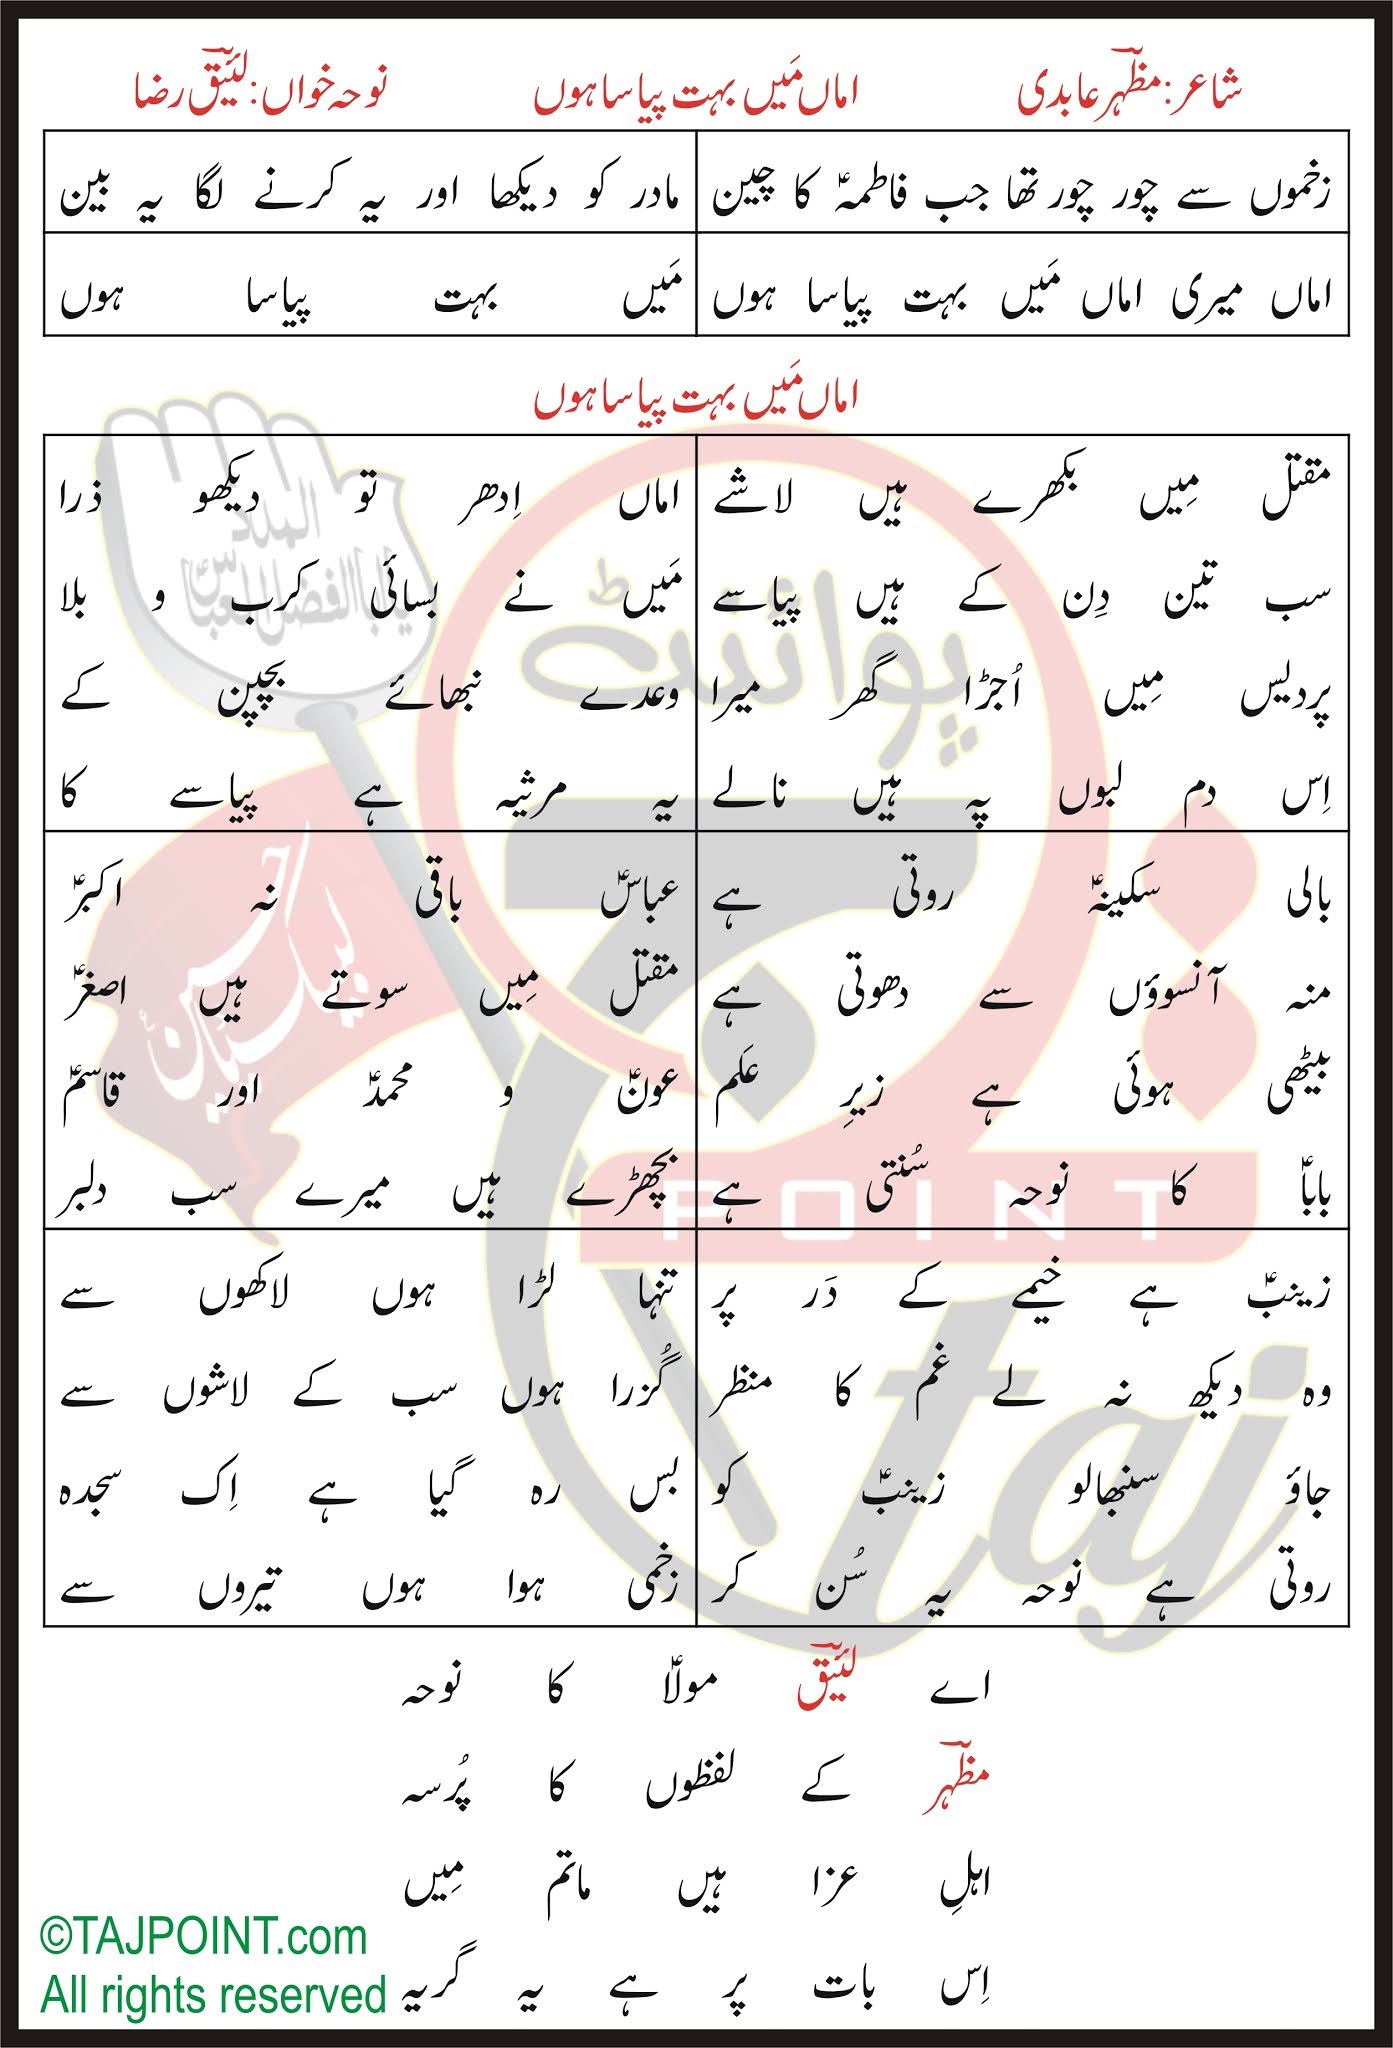 شاعر: مظہرؔ عابدی
اماں مَیں بہت پیاسا ہوں
نوحہ خواں: لئیقؔ رضا
زخموں سے چور چور تھا جب فاطمہؑ کا چین
مادر کو دیکھا اور یہ کرنے لگا یہ بین
اماں میری اماں مَیں بہت پیاسا ہوں
مَیں بہت پیاسا ہوں
اماں مَیں بہت پیاسا ہوں
مقتل مِیں بکھرے ہیں لاشے
سب تین دِن کے ہیں پیاسے
پردیس مِیں اُجڑا گھر میرا
اِس دم لبوں پہ ہیں نالے
اماں اِدھر تو دیکھو ذرا
مَیں نے بسائی کرب و بلا
وعدے نبھائے بچپن کے
یہ مرثیہ ہے پیاسے کا
بالی سکینہؑ روتی ہے
منہ آنسوؤں سے دھوتی ہے
بیٹھی ہوئی ہے زیرِ عَلم
باباؑ کا نوحہ سُنتی ہے
عباسؑ باقی نہ اکبرؑ
مقتل مِیں سوتے ہیں اصغرؑ
عونؑ و محمدؑ اور قاسمؑ
بچھڑے ہیں میرے سب دلبر
زینبؑ ہے خیمے کے دَر پر
وہ دیکھ نہ لے غم کا منظر
جاؤ سنبھالو زینبؑ کو
روتی ہے نوحہ یہ سُن کر
تنہا لڑا ہوں لاکھوں سے
گُزرا ہوں سب کے لاشوں سے
بس رہ گیا ہے اِک سجدہ
زخمی ہوا ہوں تیروں سے
اے لئیقؔ مولاؑ کا نوحہ
مظہرؔ کے لفظوں کا پُرسہ
اہلِ عزا ہیں ماتم مِیں
اِس بات پر ہے یہ گریہ
©TAJPOINT.com
All rights reserved
پوائنٹ
تاج
POINT
taj
المدد
یا ابالفضل العباسؑ
لبیک یا حسینؑ